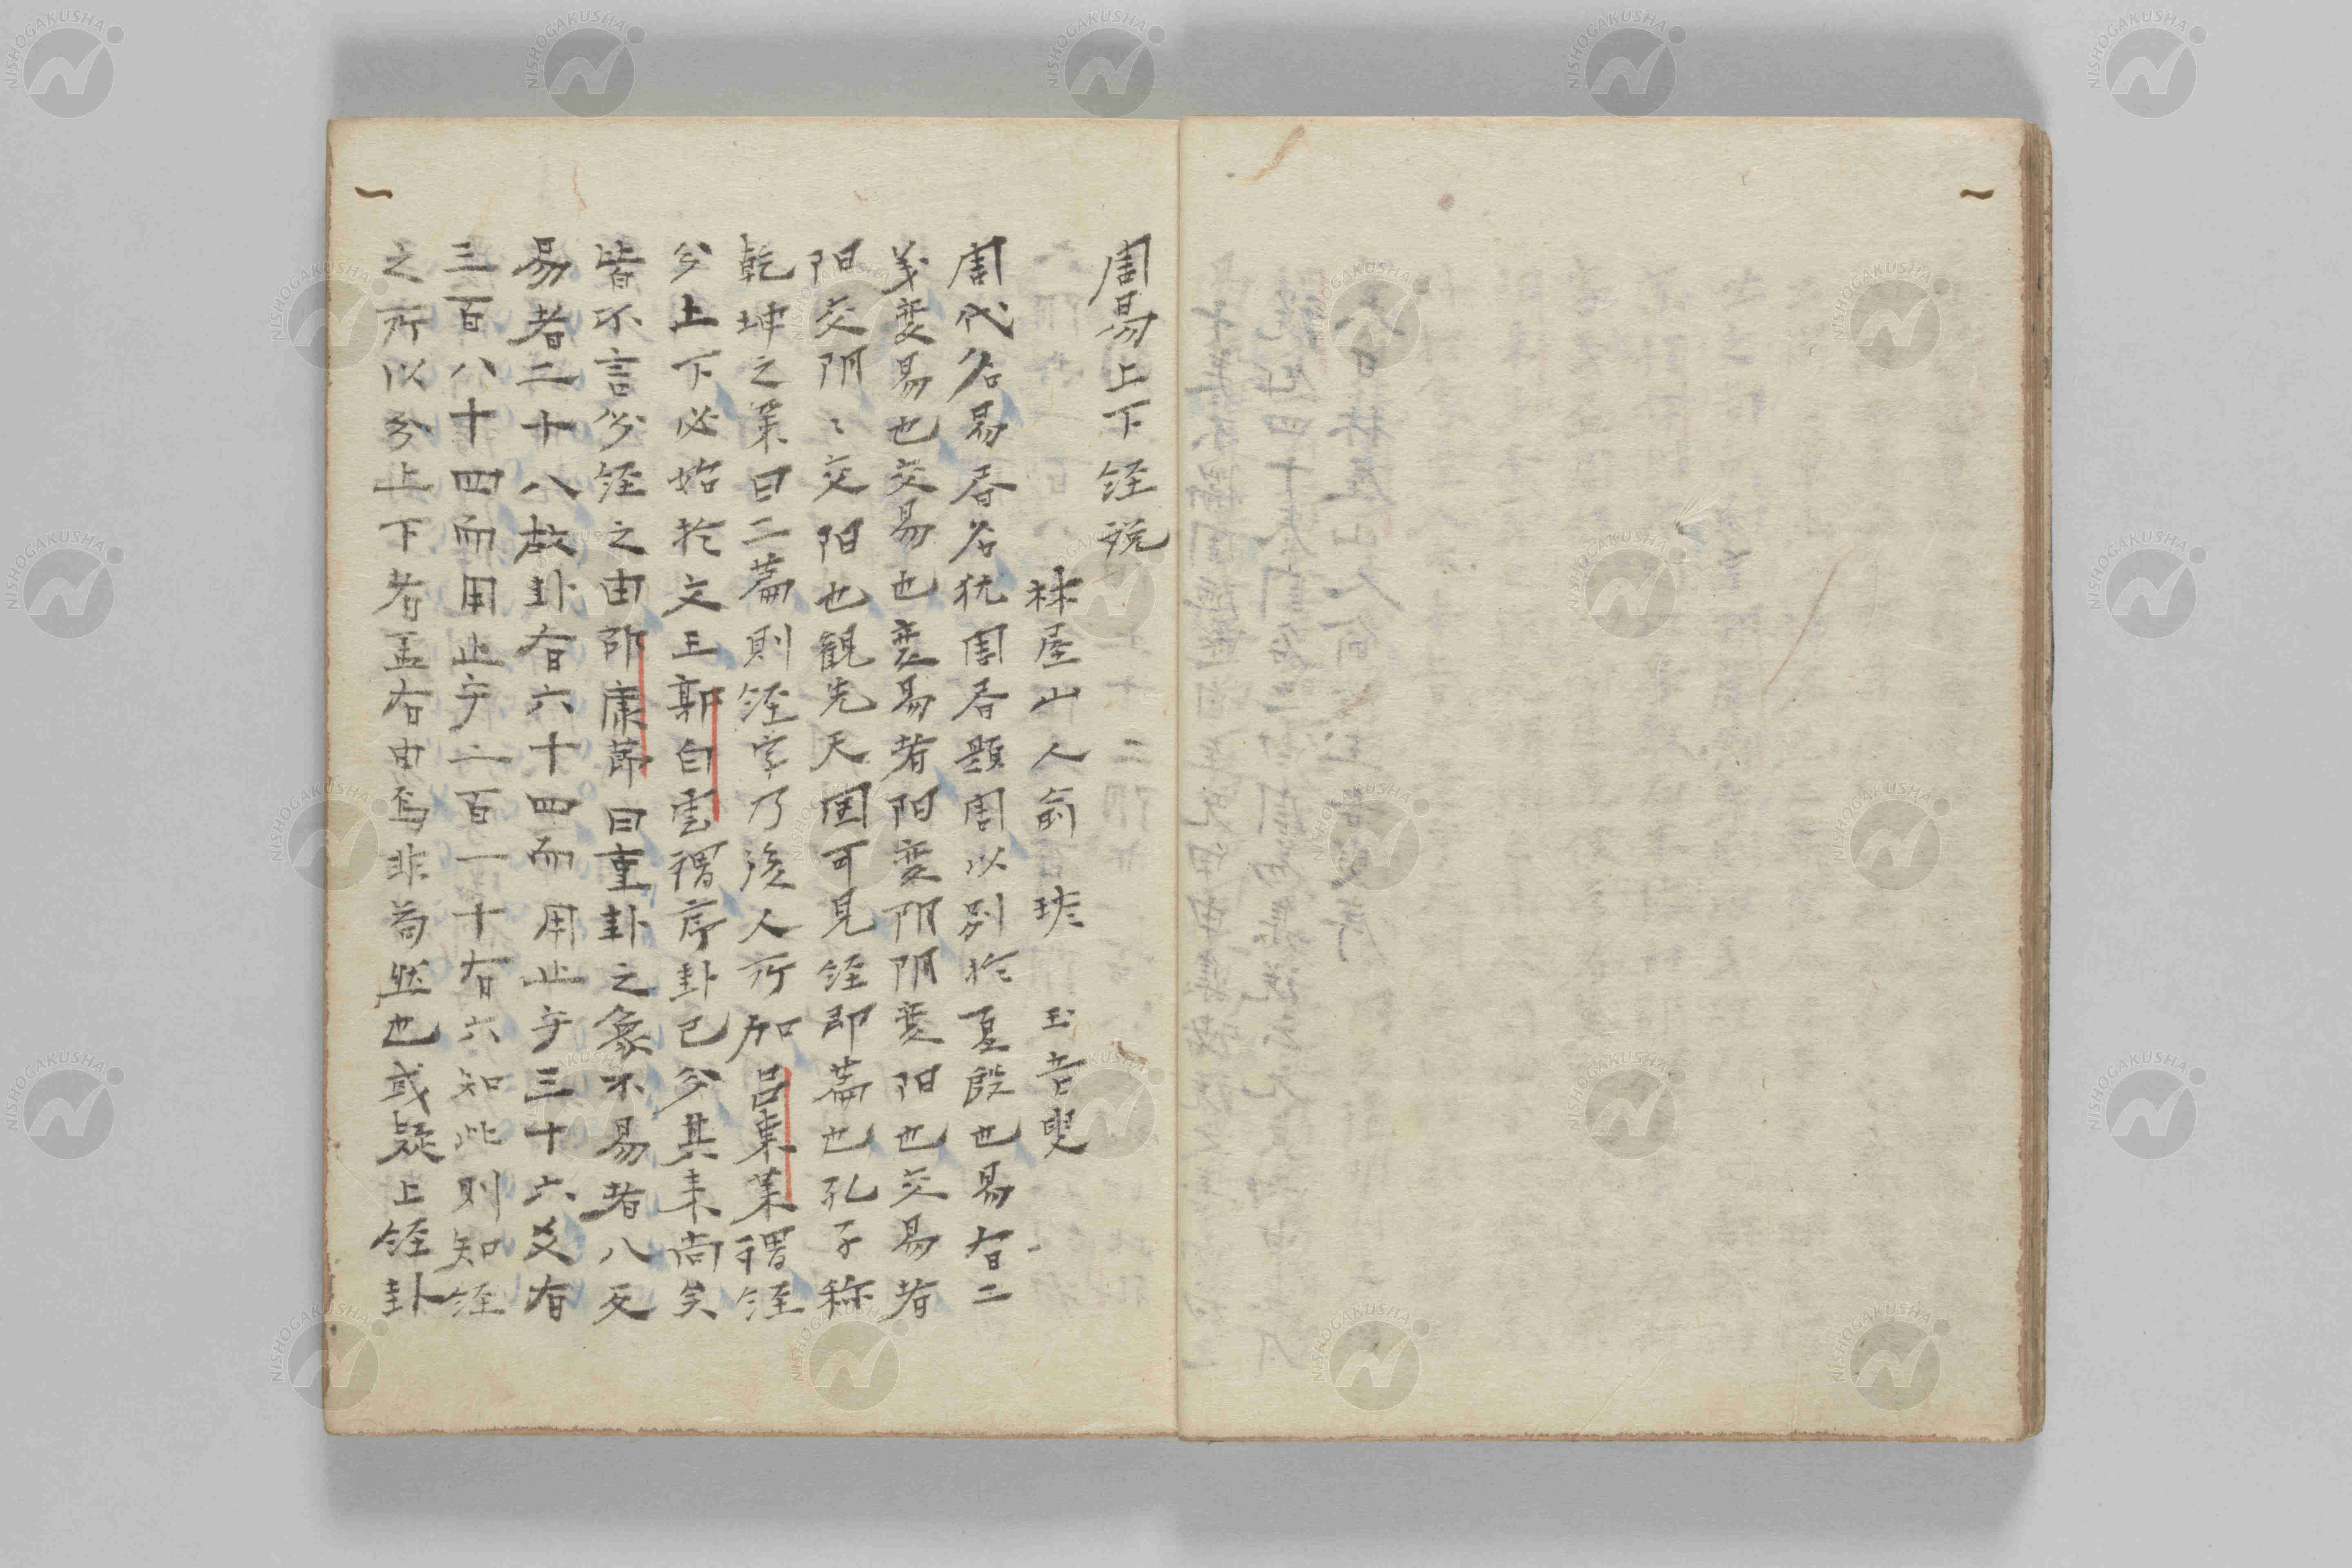 周易上下経説
林屋山人俞琰 玉吾叟
周代名易書名犹周書題周以別於夏殷也易有二
义变易也交易也变易者阳变阴阴变阳也交易者
阳交阴〻交阳也観先天图可見経即篇也孔子称
乾坤之策曰二篇則経字乃後人所加吕東莱謂経
分上下必始於文王郭白雲謂序卦已分其来尚矣
皆不言分経之由邵康莭曰重卦之象不易者八反
易者二十八故卦有六十四而用止乎三十六爻有
三百八十四而用止乎二百一十有六知此則知経
之所以分上下者盖有由焉非苟然也或疑上経卦
NISHOGAKUSHA